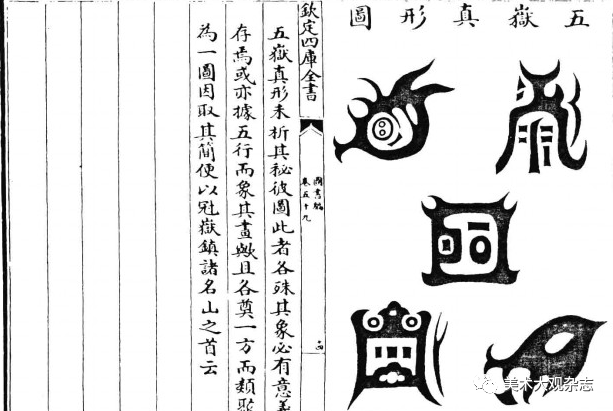 五嶽真形圖
欽定四庫全書
圖書編
卷五十九
五嶽真形未析其秘彼圖此者各殊其象必有意義
存焉或亦據五行而象其畫歟且各奠一方而類聚
為一圖因取其簡便以冠嶽鎮諸名山之首云
美术大观杂志